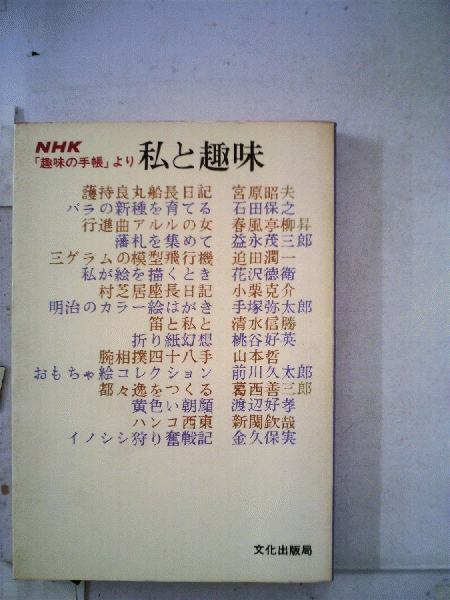 NHK
「趣味の手帳」より 私と趣味
護持良丸船長日記 宮原昭夫
バラの新種を育てる 石田保之
行進曲アルルの女 春風亭柳昇
藩札を集めて 益永茂三郎
三グラムの模型飛行機 迫田潤一
私が絵を描くとき 花沢徳衛
村芝居座長日記 小栗克介
明治のカラー絵はがき 手塚弥太郎
笛と私と 清水信勝
折り紙幻想 桃谷好英
腕相撲四十八手 山本哲
おもちゃ絵コレクション 前川久太郎
都々逸をつくる 葛西善三郎
黄色い朝顔 渡辺好孝
ハンコ西東 新関欽哉
イノシシ狩り奮戦記 金久保実
文化出版局